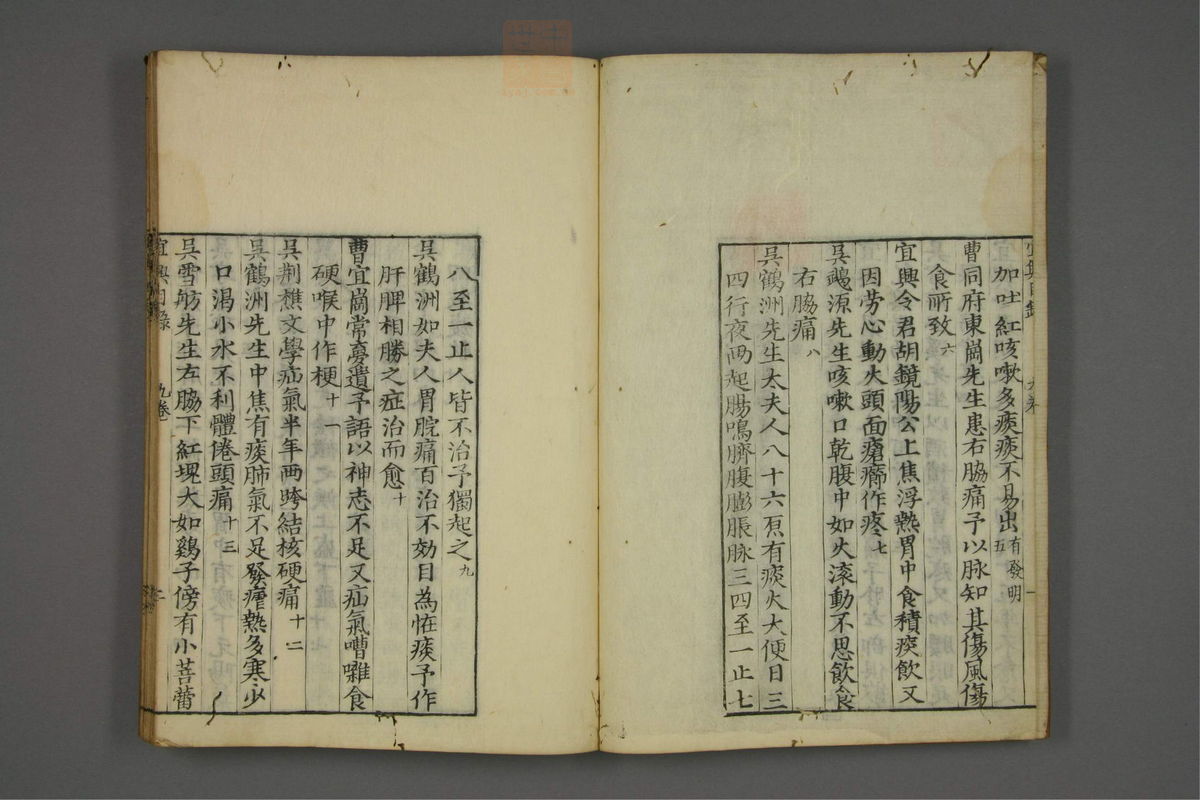 加吐紅咳嗽多痰痰不易出有發明五
曹同府東崗先生患右脇痛予以脉知其傷風傷
食所致六
宜興令君胡鏡陽公上焦浮熱胃中食積痰飲又
因勞心動火頭面瘡癤作疼七
吳鷀源先生咳嗽口乾腹中如火滚動不思飲食
右脇痛八
吳鶴洲先生太夫人八十六原有痰火大便日三
四行夜兩起腸鳴臍腹膨脹脉三四至一止七
八至一止人皆不治予獨起之九
吳鶴洲如夫人胃脘痛百治不効目為怪痰予作
肝脾相勝之症治而愈十
曹宜崗常夣遺予語以神志不足又疝氣嘈雜食
硬喉中作梗十一
吳荆樵文學疝氣半年兩胯結核硬痛十二
吳鶴洲先生中焦有痰肺氣不足發瘧熱多寒少
口渴小水不利體倦頭痛十三
吳雪舫先生左脇下紅塊大如鷄子傍有小菩蕾
宜興目錄 九卷 二